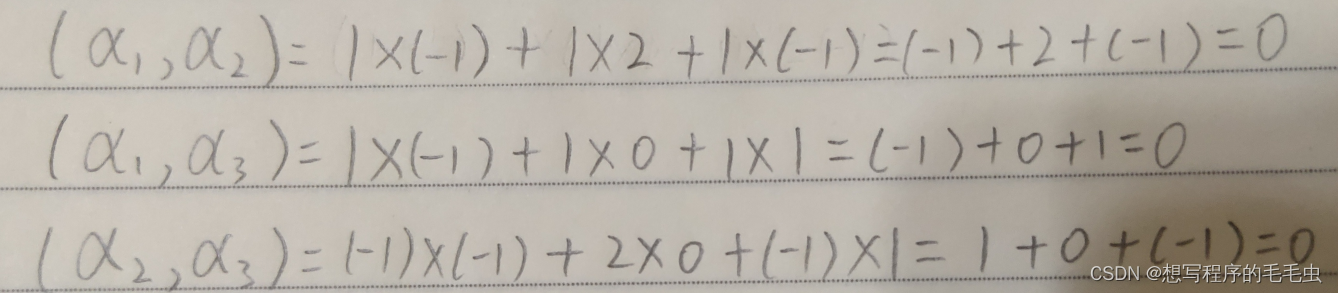 (α₁,α₂)=1×(-1)+1×2+1×(-1)=(-1)+2+(-1)=0
(α₁,α₃)=1×(-1)+1×0+1×1=(-1)+0+1=0
(α₂,α₃)=(-1)×(-1)+2×0+(-1)×1=1+0+(-1)=0
CSDN @想写程序的毛毛虫